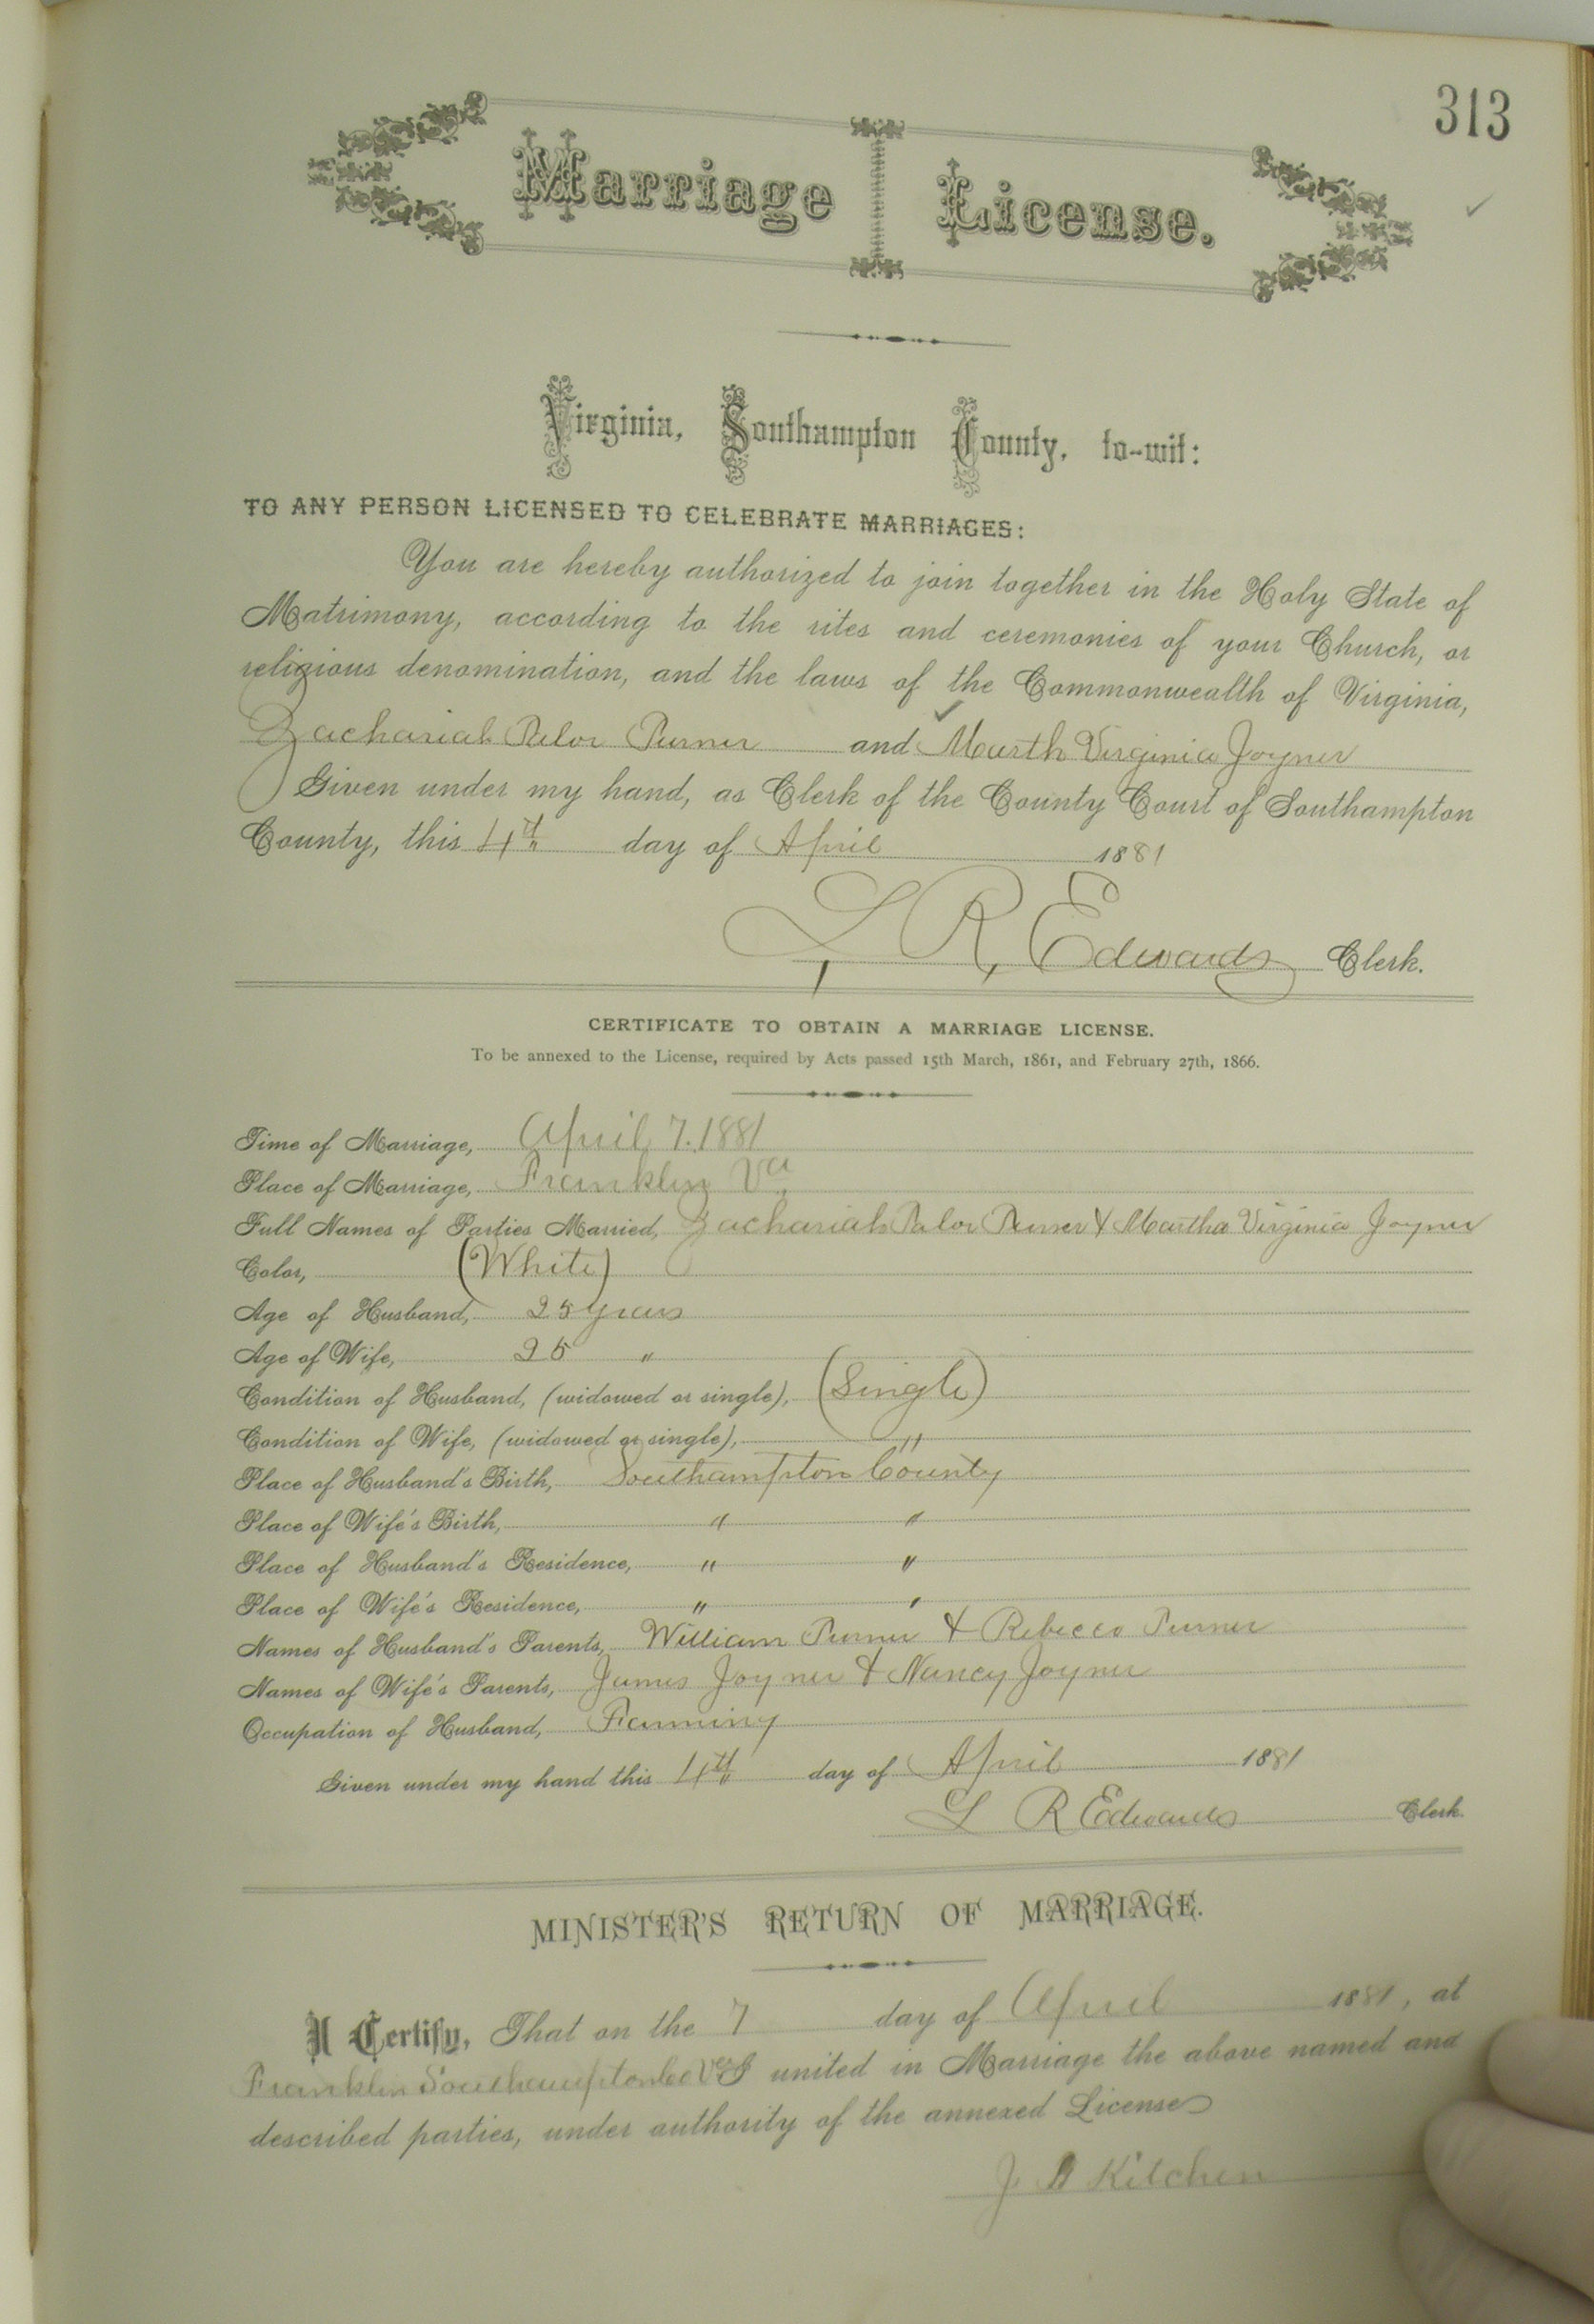 313
Marriage License.
Virginia, Southampton County, to-wit:
TO ANY PERSON LICENSED TO CELEBRATE MARRIAGES:
You are hereby authorized to join together in the Holy State of
Matrimony, according to the rites and ceremonies of your Church, or
religious denomination, and the laws of the Commonwealth of Virginia,
Zachariah Turner and Marth Virginia Joyner
Given under my hand, as Clerk of the County Court of Southampton
County, this 4th day of April 1881
L. R. Edwards Clerk.
CERTIFICATE TO OBTAIN A MARRIAGE LICENSE.
To be annexed to the License, required by Acts passed 15th March, 1861, and February 27th, 1866.
Time of Marriage, April 7. 1881
Place of Marriage, Franklin Va
Full Names of Parties Married, Zachariah Turner & Martha Virginia Joyner
Color, (White)
Age of Husband, 25 years
Age of Wife, 25 "
Condition of Husband, (widowed or single), (Single)
Condition of Wife, (widowed or single), "
Place of Husband's Birth, Southampton County
Place of Wife's Birth, " "
Place of Husband's Residence, " "
Place of Wife's Residence, " "
Names of Husband's Parents, William Turner & Rebecca Turner
Names of Wife's Parents, James Joyner & Nancy Joyner
Occupation of Husband, Farming
Given under my hand this 4th day of April 1881
L R Edwards Clerk.
MINISTER'S RETURN OF MARRIAGE.
I Certify, That on the 7 day of April 1881, at
Franklin Southampton Co Va I united in Marriage the above named and
described parties, under authority of the annexed License
J. Kitchen